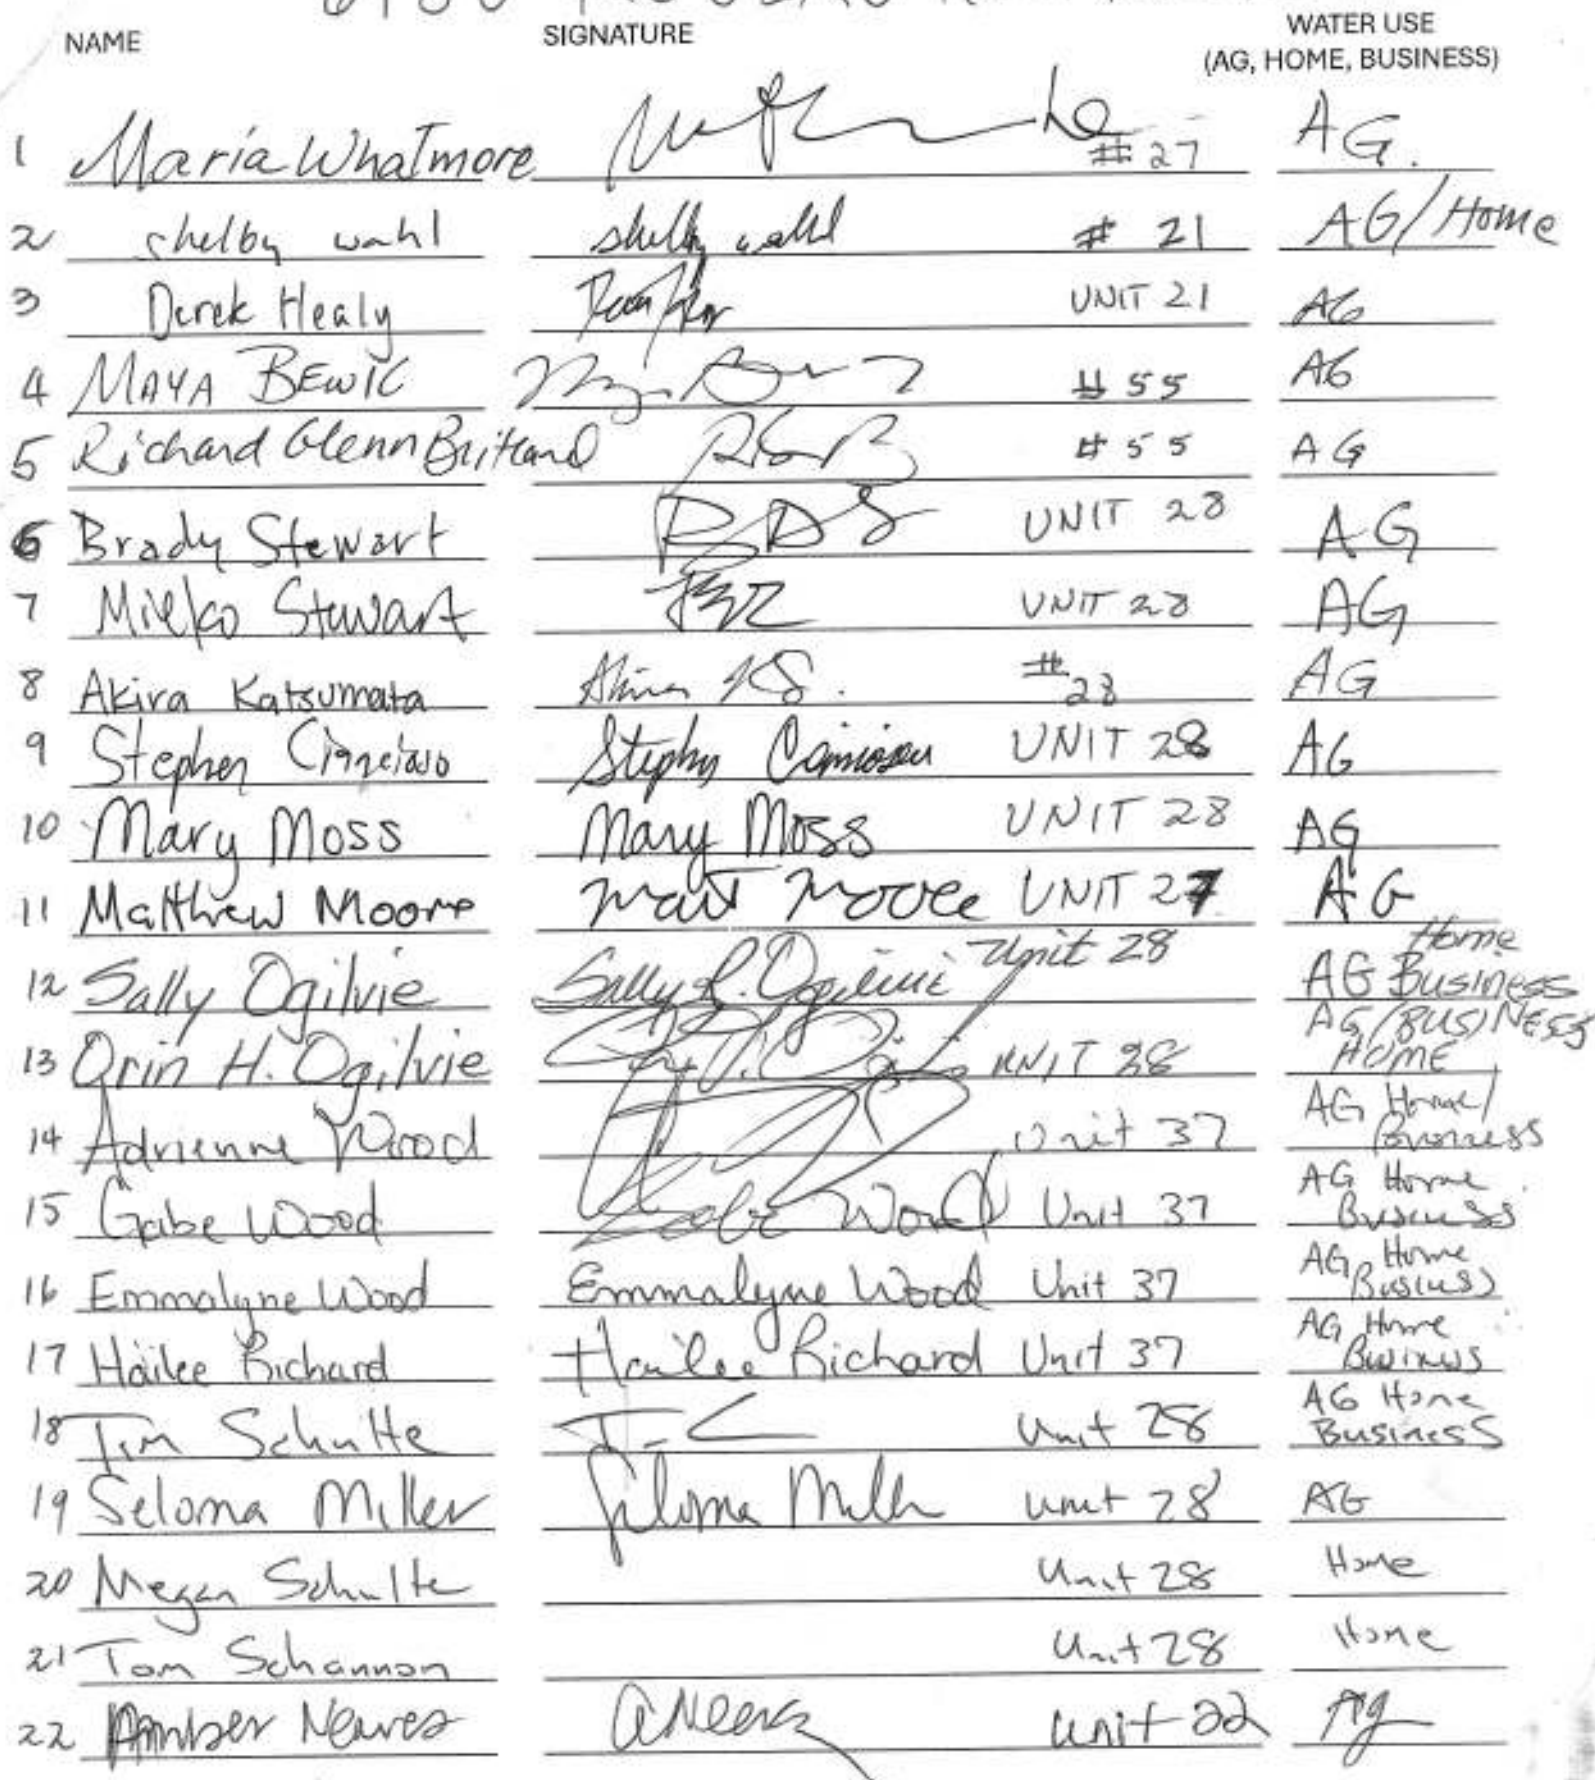 NAME SIGNATURE WATER USE
(AG, HOME, BUSINESS)
1 Maria Whatmore #27 AG.
2 shelby wahl shelby wahl # 21 AG/Home
3 Derek Healy UNIT 21 AG
4 MAYA BEWIC # 55 AG
5 Richard Glenn Britland RGB # 55 AG
6 Brady Stewart BDS UNIT 28 AG
7 Mieko Stewart UNIT 28 AG
8 Akira Katsumata Akira KS. # 28 AG
9 Stephen UNIT 28 AG
10 Mary Moss Mary Moss UNIT 28 AG
11 Matthew Moore Matt Moore UNIT 27 AG
12 Sally Ogilvie Sally L. Ogilvie Unit 28 AG Home Business
13 Orin H. Ogilvie UNIT 28 AG/BUSINESS HOME
14 Adrienne Wood Unit 37 AG Home/ Business
15 Gabe Wood Gabe Wood Unit 37 AG Home Business
16 Emmalyne Wood Emmalyne Wood Unit 37 AG Home Business
17 Hailee Richard Hailee Richard Unit 37 AG Home Business
18 Tim Schulte Unit 28 AG Home Business
19 Seloma Miller Seloma Miller unit 28 AG
20 Megan Schulte Unit 28 Home
21 Tom Schannon Unit 28 Home
22 Amber Unit 22 Ag